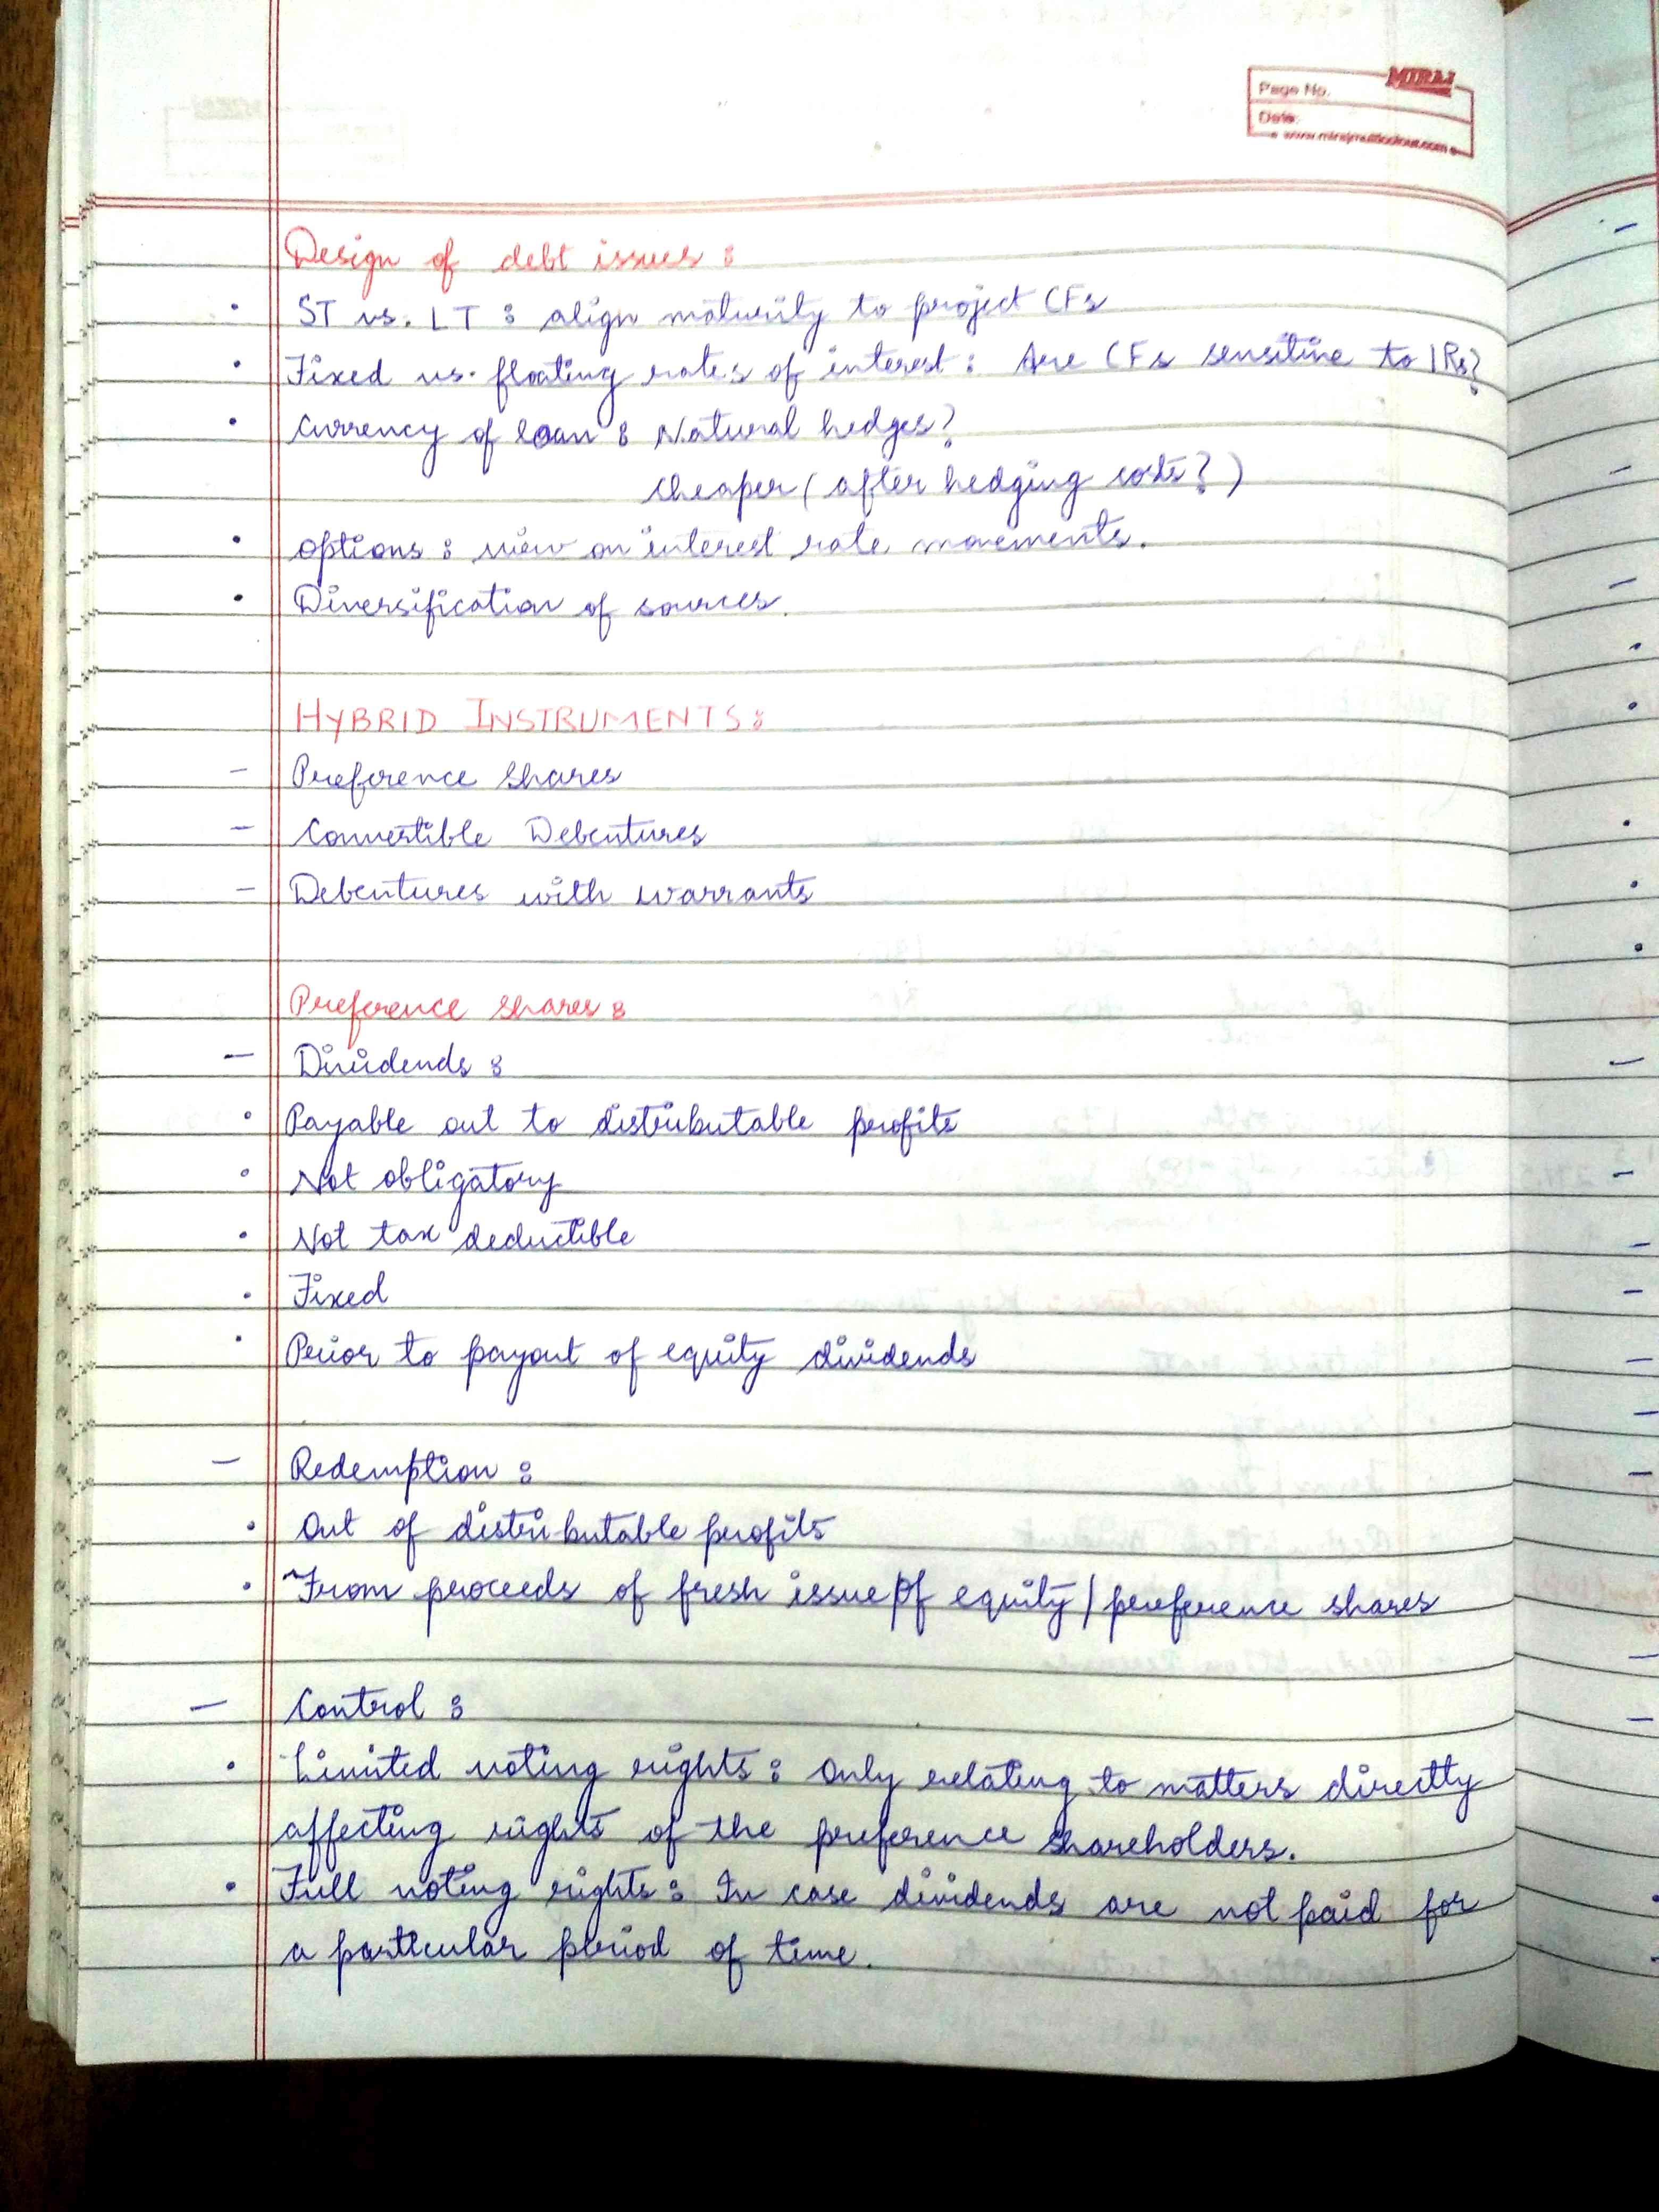 MIRAJ
Page No.
Date:
Design of debt issues :
• ST vs. LT : align maturity to project CFs
• Fixed vs. floating rates of interest : Are CFs sensitive to IRs?
• Currency of loan : Natural hedges?
cheaper (after hedging costs?)
• options : view on interest rate movements.
• Diversification of sources.
HYBRID INSTRUMENTS :
– Preference Shares
– Convertible Debentures
– Debentures with warrants
Preference shares :
– Dividends :
• Payable out to distributable profits
• Not obligatory
• Not tax deductible
• Fixed
• Prior to payout of equity dividends
– Redemption :
• Out of distributable profits
• From proceeds of fresh issue of equity / preference shares
– Control :
• Limited voting rights : Only relating to matters directly
affecting rights of the preference shareholders.
• Full voting rights : In case dividends are not paid for
a particular period of time.